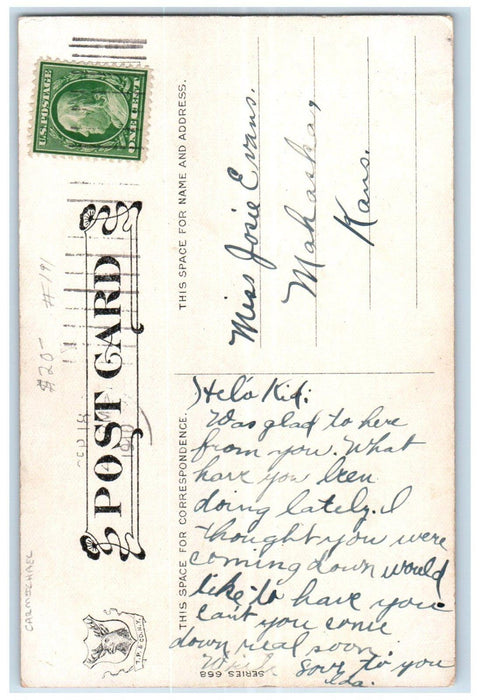 U.S. POSTAGE
ONE CENT
POST CARD
THIS SPACE FOR NAME AND ADDRESS.
Miss Josie Evans.
Mahaska,
Kans.
THIS SPACE FOR CORRESPONDENCE.
Hel'o Kid:
Was glad to here
from you. What
have you been
doing lately. I
thought you were
coming down would
like to have you
can't you come
down real soon
Write soon to you
Ida.
SERIES 668
T.P. & CO. N.Y.
$20-
#191
CARMICHAEL